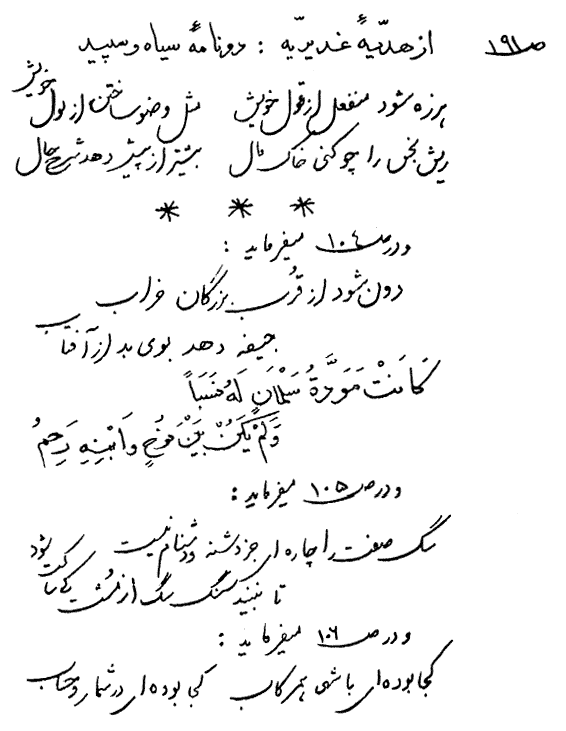 ص ۱۹۱ از هدیّهٔ غدیریّه : دو نامهٔ سیاه و سپید
هرزه شود منفعل از قول خویش مثل وضو ساختن از بول خویش
ریش نجس را چو کنی خاک مال بیشتر از پیش دهد شرح حال
* * *
و در ص ۱۰٤ میفرماید :
دون شود از قُرب بزرگان خراب
جیفه دهد بوی بد از آفتاب
کَانَتْ مَوَدَّةُ سَلْمَانٍ لَهُ نَسَبَاً
وَلَمْ یَکُنْ بَیْنَ نُوحٍ وَابْنِهِ رَحِمُ
و در ص ۱۰۵ میفرماید :
سگ صفت را چاره ای جز دشنه و دشنام نیست
تا نبیند سنگ سگ از مُشت کی ساکت شود
و در ص ۱۰٦ میفرماید :
کجا بوده ای با شهی همرکاب کجا بوده ای در شمار و حساب